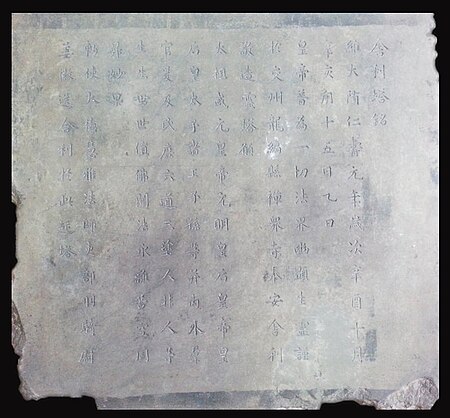 舍利塔銘
維大隋仁壽元年歲次辛酉十月
辛亥朔十五日乙丑
皇帝普為一切法界幽顯生靈謹
於交州龍編縣禪眾寺奉安舍利
敬造靈塔願
太祖武元皇帝元明皇后皇帝皇
后皇太子諸王子孫等并內外群
官爰及民庶六道三塗人非人等
生生世世值佛聞法永離苦空同
昇妙果
敕使大德慧雅法師吏部羽騎尉
姜徽送舍利於此起塔